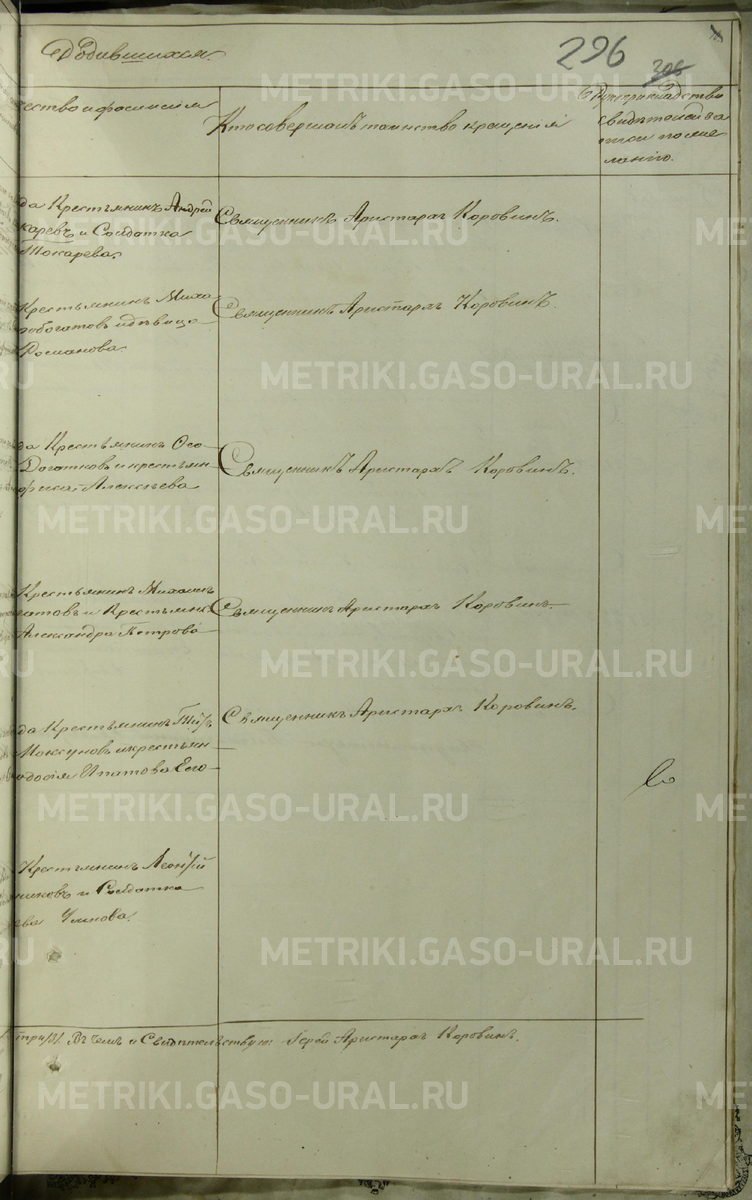 Родившихся.
296
206
ество и фамилия
Кто совершалъ таинство крещенія
свидѣтелей за
писи по же
ланію.
да Крестьянинъ Андрей
каревъ и Солдатка
Токарева.
Священникъ Аристархъ Коровинъ.
Крестьянинъ Миха
робогатовъ и дѣвица
Романова
Священникъ Аристархъ Коровинъ.
да Крестьянинъ
Богатковъ и крестьян
Алексѣева
Священникъ Аристархъ Коровинъ.
Крестьянинъ Михаилъ
гатовъ и Крестьянк
Александра Петрова
Священникъ Аристархъ Коровинъ.
да Крестьянинъ
Моксуновъ и крестьян
досія Ипатова Его
Священникъ Аристархъ Коровинъ.
Крестьянинъ
никовъ и Солдатка
ева
три /3/. Въ чемъ и Свидѣтельствую: Іерей Аристархъ Коровинъ.
METRIKI.GASO-URAL.RU